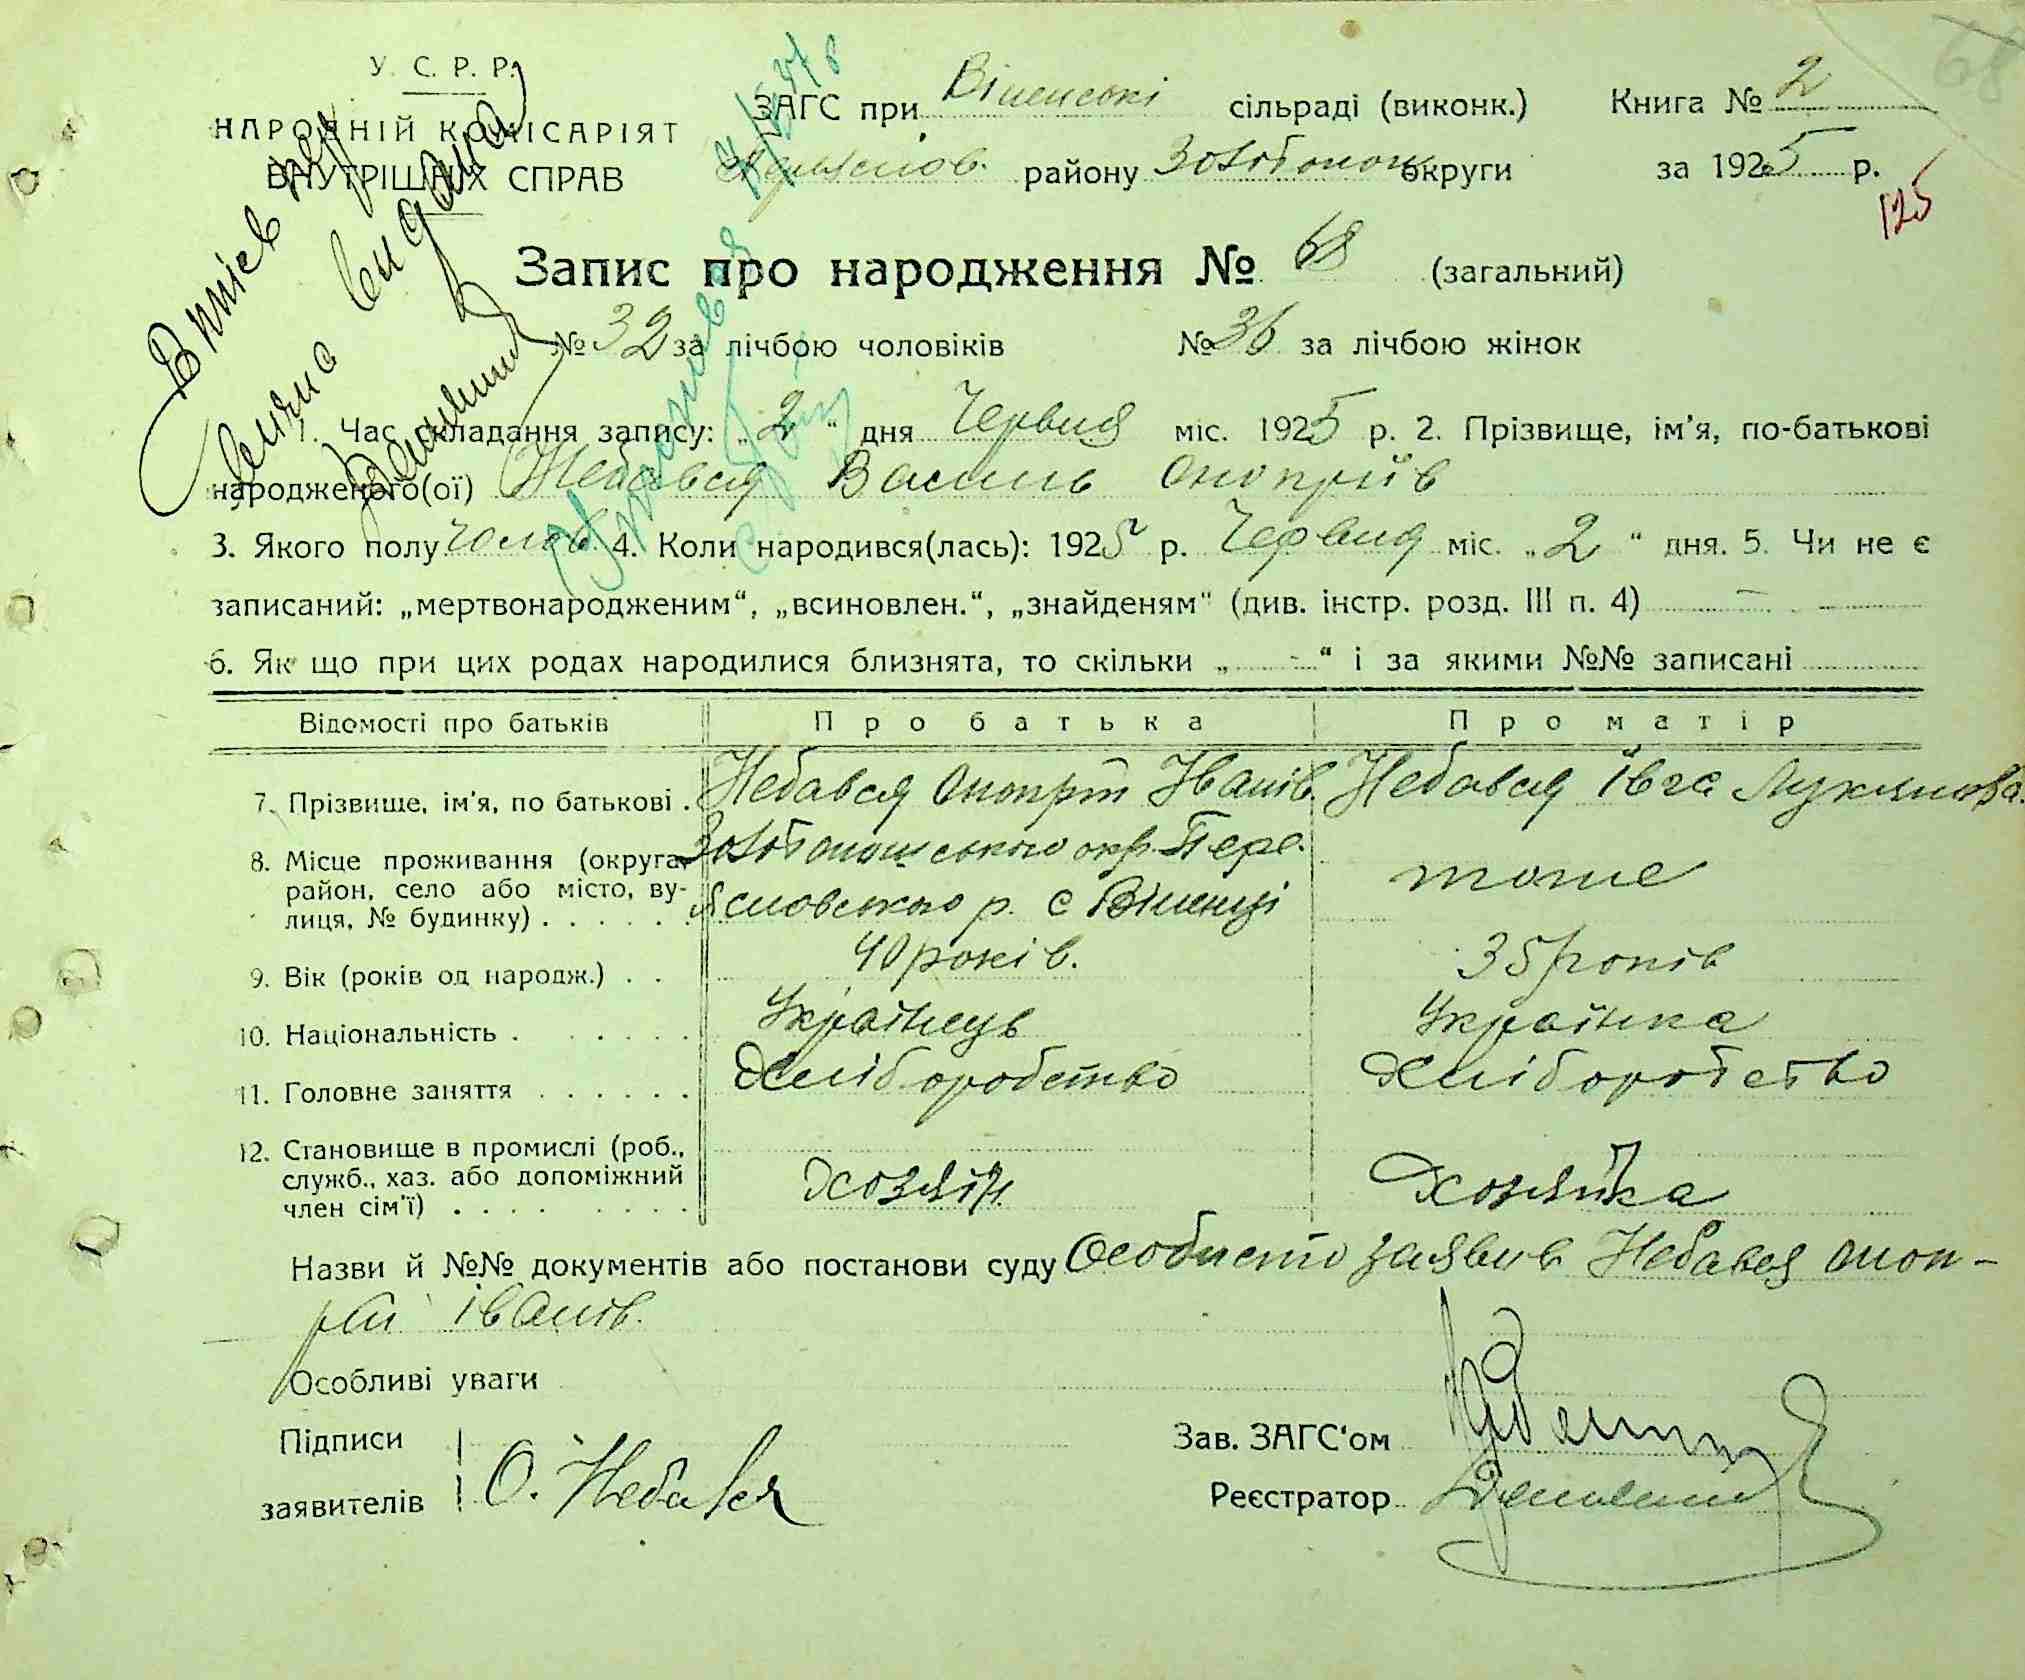 У. С. Р. Р.
НАРОДНІЙ КОМІСАРІЯТ
ВНУТРІШНІХ СПРАВ
ЗАГС при Віненські сільраді (виконк.) Книга № 2
району Золотонош округи за 1925 р.
125
68
Запис про народження № 68 (загальний)
№ 32 за лічбою чоловіків № 36 за лічбою жінок
1. Час складання запису: „2“ дня Червня міс. 1925 р. 2. Прізвище, ім'я, по-батькові
народженого(ої) Небався Василь Оноприїв
3. Якого полу чолов. 4. Коли народився(лась): 1925 р. Червня міс. „2“ дня. 5. Чи не є
записаний: „мертвонародженим“, „всиновлен.“, „знайденям“ (див. інстр. розд. III п. 4) —
6. Як що при цих родах народилися близнята, то скільки „ - “ і за якими №№ записані
Відомості про батьків Про батька Про матір
7. Прізвище, ім'я, по батькові . Небався Оноприй Іванів. Небався Івга Лукянова.
8. Місце проживання (округа, район, село або місто, вулиця, № будинку) . . . . . .
Золотоношського окр. Пере-
яславського р. с Віненці
тоже
9. Вік (років од народж.) . . 40 років. 35 років
10. Національність . . . . . . Українець Українка
11. Головне заняття . . . . . . Хліборобство Хліборобство
12. Становище в промислі (роб., служб., хаз. або допоміжний член сім'ї) . . . . . . . .
хозяїн хозяйка
Назви й №№ документів або постанови суду Особисто заявив Небався Оноп-
рій іванів.
Особливі уваги
Підписи
заявителів О. Небався
Зав. ЗАГС'ом
Реєстратор